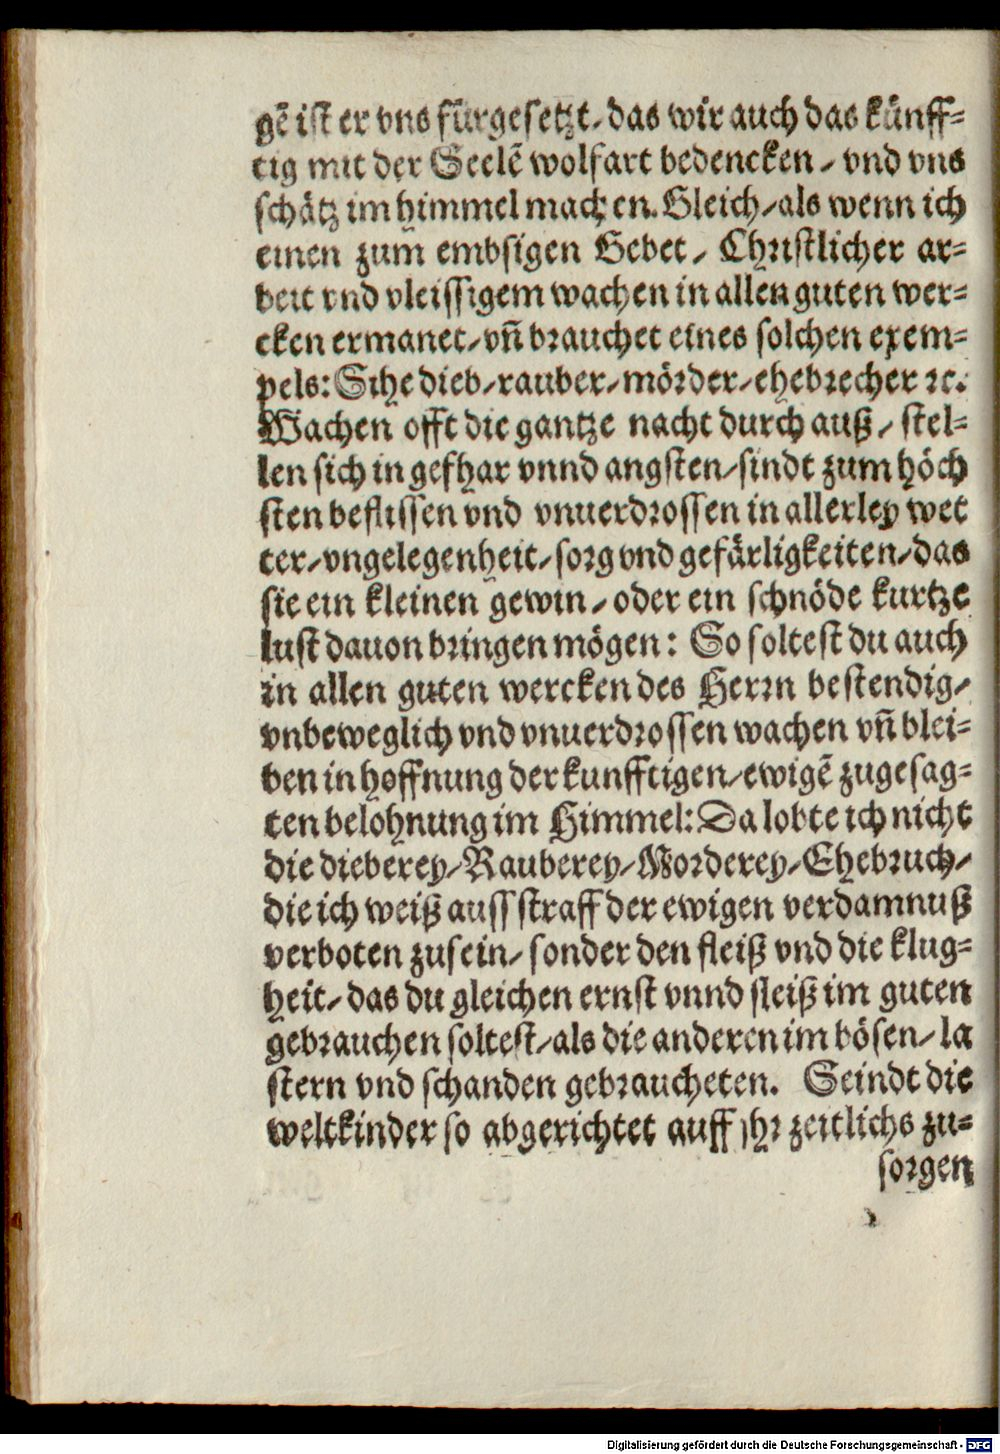 gẽ ist er vns fürgesetzt / das wir auch das künff-
tig mit der Seelẽ wolfart bedencken / vnd vns
schätz im himmel machen. Gleich / als wenn ich
einen zum embsigen Gebet / Christlicher ar-
beit vnd vleissigem wachen in allen guten wer-
cken ermanet / vñ brauchet eines solchen exem-
pels: Sihe dieb / rauber / mörder / ehebrecher ꝛc.
Wachen offt die gantze nacht durch auß / stel-
len sich in gefhar vnnd angsten / sindt zum höch
sten beflissen vnd vnuerdrossen in allerley wet
ter / vngelegenheit / sorg vnd gefärligkeiten / das
sie ein kleinen gewin / oder ein schnöde kurtze
lust dauon bringen mögen: So soltest du auch
in allen guten wercken des Herrn bestendig /
vnbeweglich vnd vnuerdrossen wachen vñ blei-
ben in hoffnung der kunfftigen / ewigẽ zugesag-
ten belohnung im Himmel: Da lobte ich nicht
die dieberey / Rauberey / Morderey / Ehebruch /
die ich weiß auss straff der ewigen verdamnuß
verboten zusein / sonder den fleiß vnd die klug-
heit / das du gleichen ernst vnnd fleiß im guten
gebrauchen soltest / als die anderen im bösen / la
stern vnd schanden gebraucheten. Seindt die
weltkinder so abgerichtet auff jhr zeitlichs zu-
sorgen
Digitalisierung gefördert durch die Deutsche Forschungsgemeinschaft - DFG